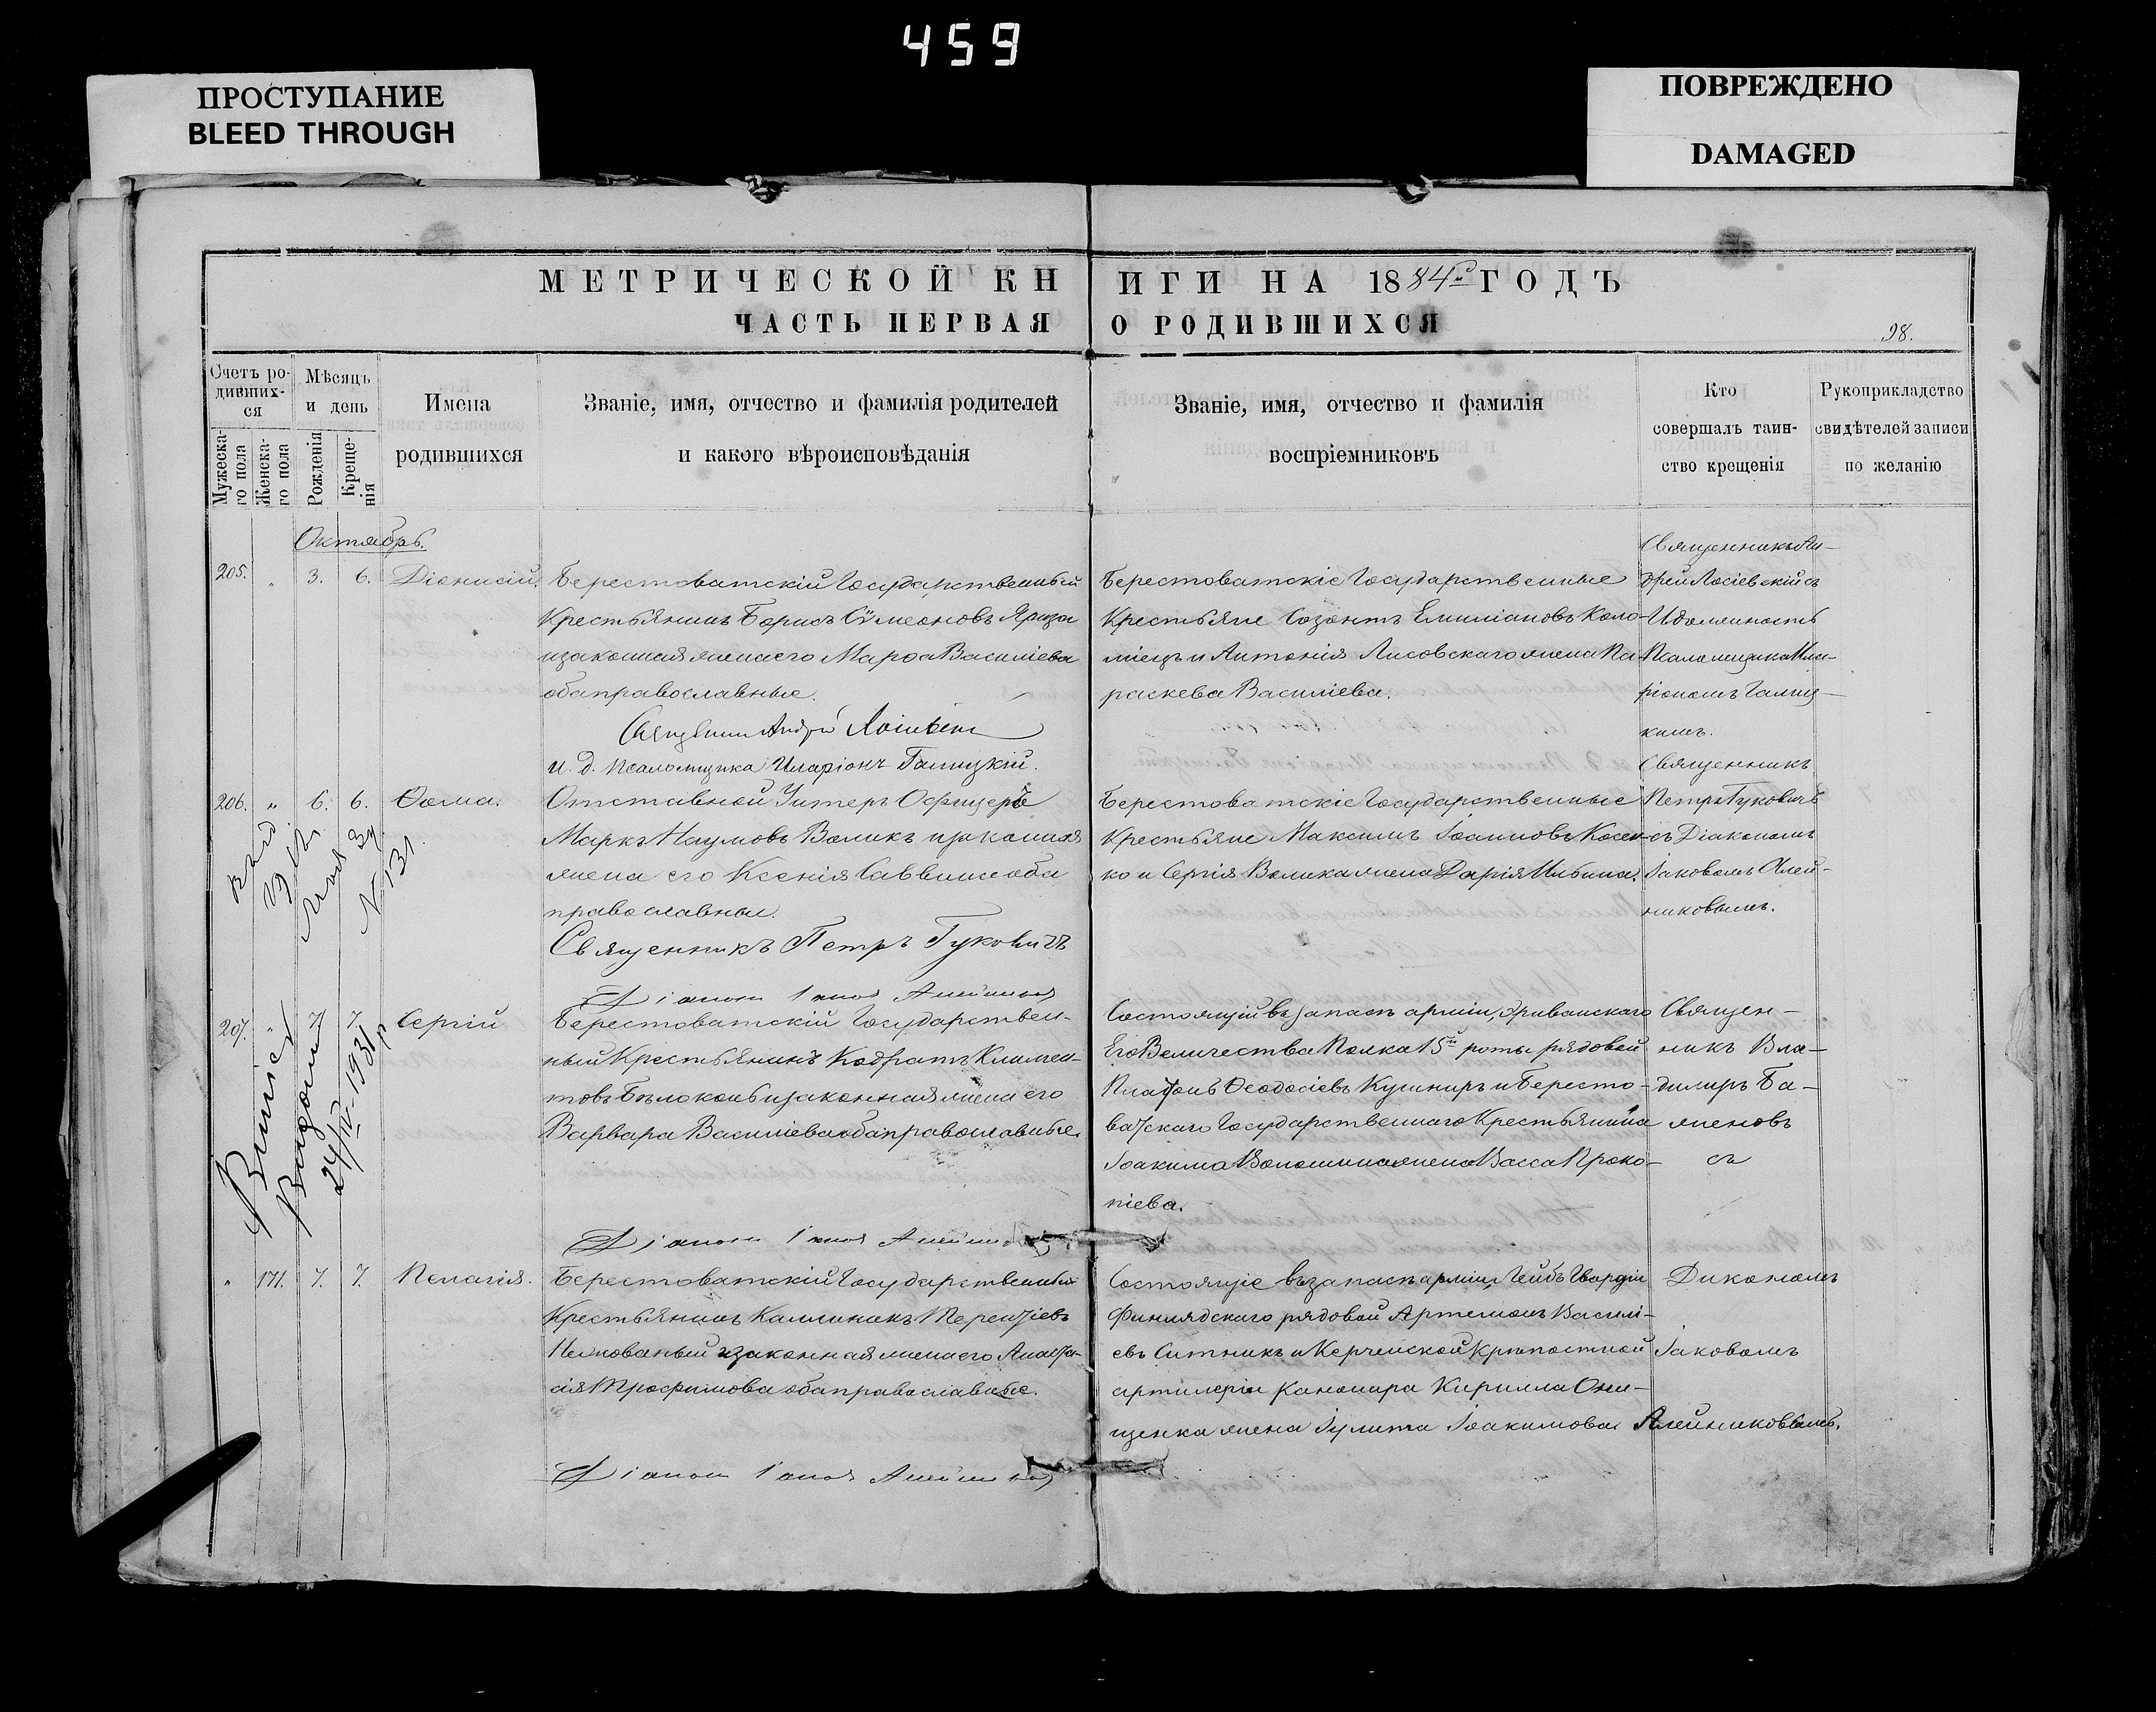 459
ПРОСТУПАНИЕ
BLEED THROUGH
ПОВРЕЖДЕНО
DAMAGED
МЕТРИЧЕСКОЙ КНИГИ НА 1884й ГОДЪ
ЧАСТЬ ПЕРВАЯ О РОДИВШИХСЯ
98.
Счетъ родивших-
ся
Мужеска-
го пола
Женска-
го пола
Мѣсяцъ
и день
Рожденія
Креще-
нія
Имена
родившихся
Званіе, имя, отчество и фамилія родителей
и какого вѣроисповѣданія
Званіе, имя, отчество и фамилія
воспріемниковъ
Кто
совершалъ таин-
ство крещенія
Рукоприкладство
свидѣтелей записи
по желанію
Октябрь.
205. " 3. 6. Діонисій.
Берестоватскій Государственный
Крестьянинъ Борисъ Сѵмеоновъ Яриза
и законная жена его Марѳа Василіева
оба православные.
Священникъ Андрей
и. д. псаломщика Иларіонъ Галицкій.
Берестоватскіе Государственные
Крестьяне Созонтъ Емиліановъ Коло-
міецъ и Антонія Лисовскаго жена Па-
раскева Василіева.
Священникъ Ан-
дрей Лосіевскій съ
И. должность
Псаломщика Ила-
ріономъ Галиц-
кимъ.
206. " 6. 6. Ѳома.
Отставной Унтеръ Офицеръ
Маркъ Наумовъ Воликъ и законная
жена его Ксенія Саввина оба
православные.
Священникъ Петръ Гуковичъ
Діаконъ Іаковъ Алейниковъ
Берестоватскіе Государственные
Крестьяне Максимъ Іоанновъ Косен-
ко и Сергія Волика жена Дарія Ильина.
Священникъ
Петръ Гуковичъ
съ Діакономъ
Іаковомъ Алей-
никовымъ.
N 131.
207. " 7. 7. Сергій
Берестоватскій Государствен-
ный Крестьянинъ Кодратъ Климен-
товъ Бѣлоконь и законная жена его
Варвара Василіева оба православные.
Діаконъ Іаковъ Алейниковъ
Состоящій въ запасѣ арміи, Эриванскаго
Его Величества Полка 15й роты рядовой
Платонъ Ѳеодосіевъ Кушниръ и Бересто-
ватскаго Государственнаго Крестьянина
Іоакима Волошина жена Васса Проко-
піева.
Священ-
никъ Вла-
димиръ Ба-
женовъ
съ
24/IV-1931 р
" 171. 7. 7. Пелагія.
Берестоватскій Государственный
Крестьянинъ Каллиникъ Терентіевъ
и законная жена его Анаста-
сія Трофимова оба православные.
Діаконъ Іаковъ Алейниковъ
Состоящіе въ запасѣ арміи, Лейбъ Гвардіи
Финлядскаго рядовой Артемонъ Василі-
евъ Ситникъ и Керченской Крѣпостной
артилеріи Канонира Кирилла Они-
щенка жена Іулита Іоакимова.
Диакономъ
Іаковомъ
Алейниковымъ.